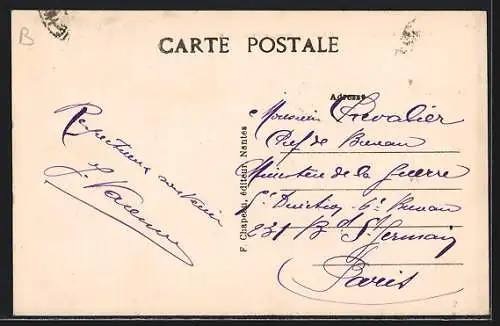 B
CARTE POSTALE
Adresse
Respectueux souvenir
J. Varenne
F. Chapeau, éditeur, Nantes
Monsieur Chevalier
Chef de Bureau
Ministère de la Guerre
Direction Bureau
231 Bd St Germain
Paris